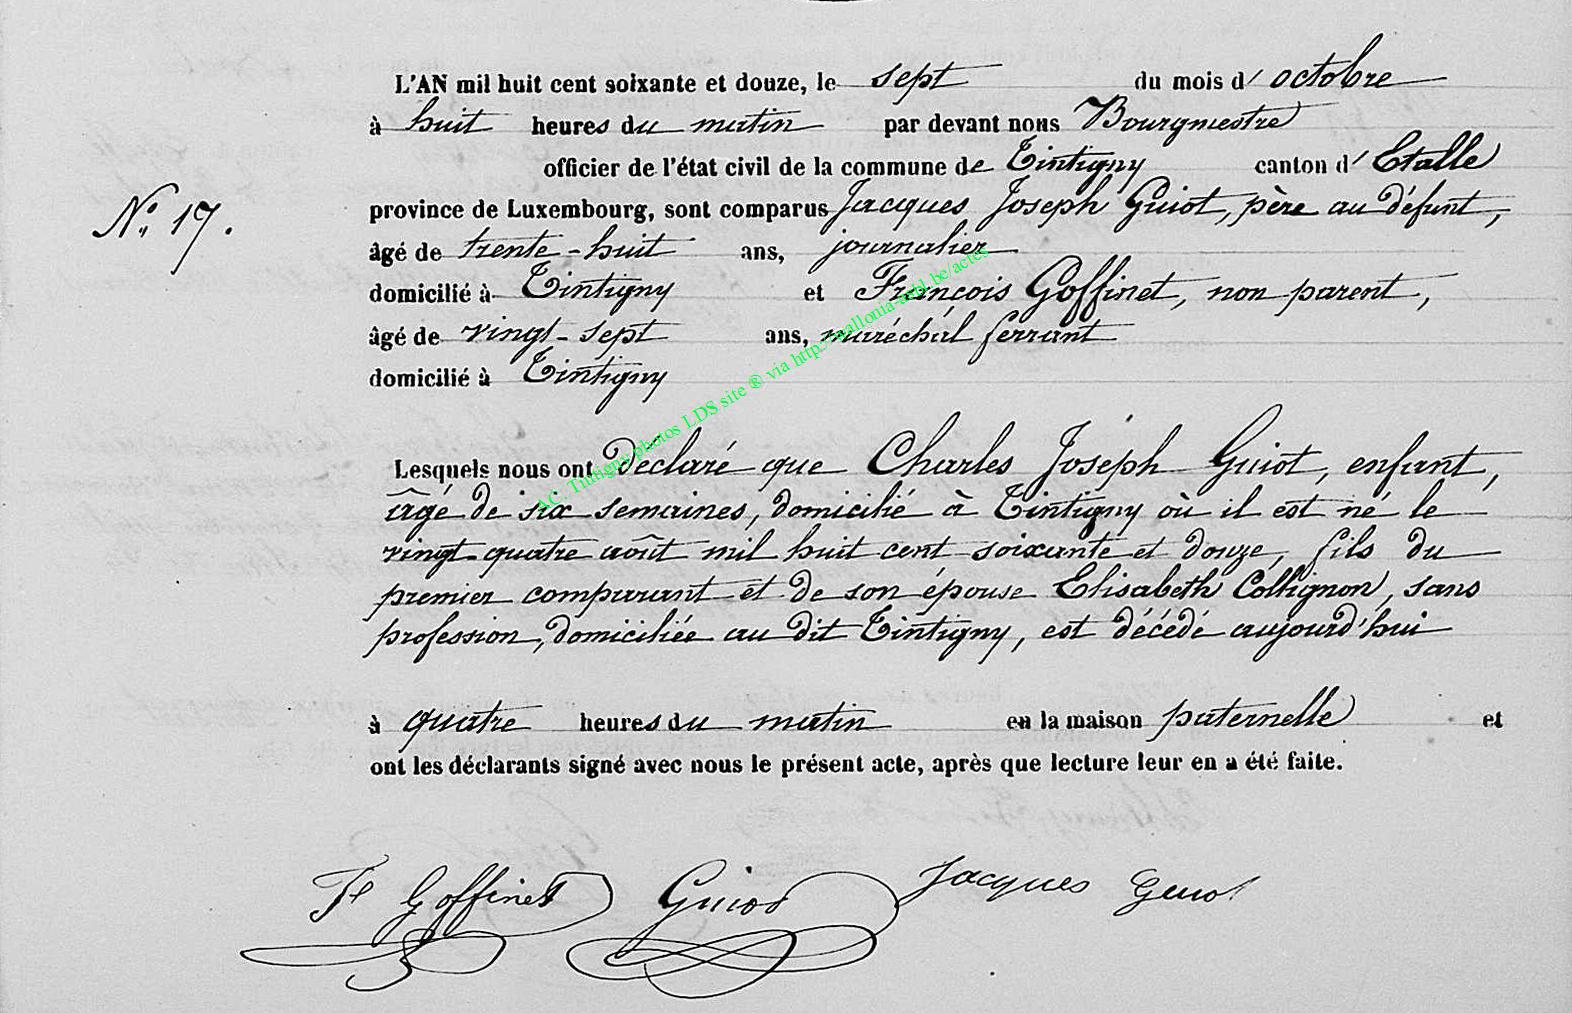 L'AN mil huit cent soixante et douze, le sept du mois d'octobre
à huit heures du matin par devant nous Bourgmestre
officier de l'état civil de la commune de Tintigny canton d'Etalle
N°. 17.
province de Luxembourg, sont comparus Jacques Joseph Guiot, père au défunt,
âgé de trente-huit ans, journalier
domicilié à Tintigny et François Goffinet, non parent,
âgé de vingt-sept ans, maréchal ferrant
domicilié à Tintigny
AC. Tintigny photos LDS site ® via http://wallonia-asbl.be/actes
Lesquels nous ont déclaré que Charles Joseph Guiot, enfant,
âgé de six semaines, domicilié à Tintigny où il est né le
vingt-quatre août mil huit cent soixante et douze, fils du
premier comparant et de son épouse Elisabeth Collignon, sans
profession, domiciliée au dit Tintigny, est décédé aujourd'hui
à quatre heures du matin en la maison paternelle et
ont les déclarants signé avec nous le présent acte, après que lecture leur en a été faite.
Goffinet Guiot Jacques Guiot